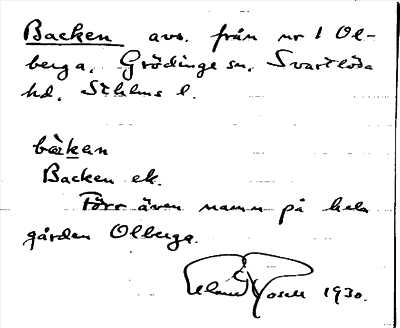 Backen avs. från nr 1 Ol-
berga, Grödinge sn, Svartlösa
hd, Sthlms l.
bàkan
Backen ek.
Förr även namn på hela
gården Olberga.
1930.